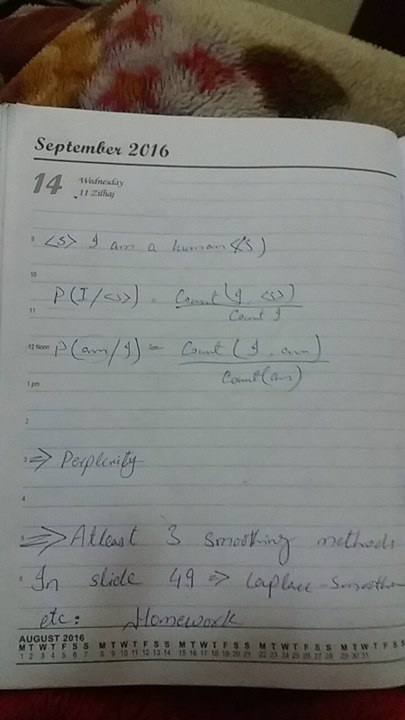 September 2016
14 Wednesday
11 Zilhaj
9 <S> I am a human <S)
10
P(I/<S>) = Count(I, <S>)
11 Count I
12 Noon P(am/I) = Count (I, am)
1 pm Count(am)
2
3 => Perplexity
4
5 => Atleast 3 smoothing methods
6 In slide 49 => Laplace-Smoothin
etc: Homework
AUGUST 2016
M T W T F S S M T W T F S S M T W T F S S M T W T F S S M T W T F S
1 2 3 4 5 6 7 8 9 10 11 12 13 14 15 16 17 18 19 20 21 22 23 24 25 26 27 28 29 30 31